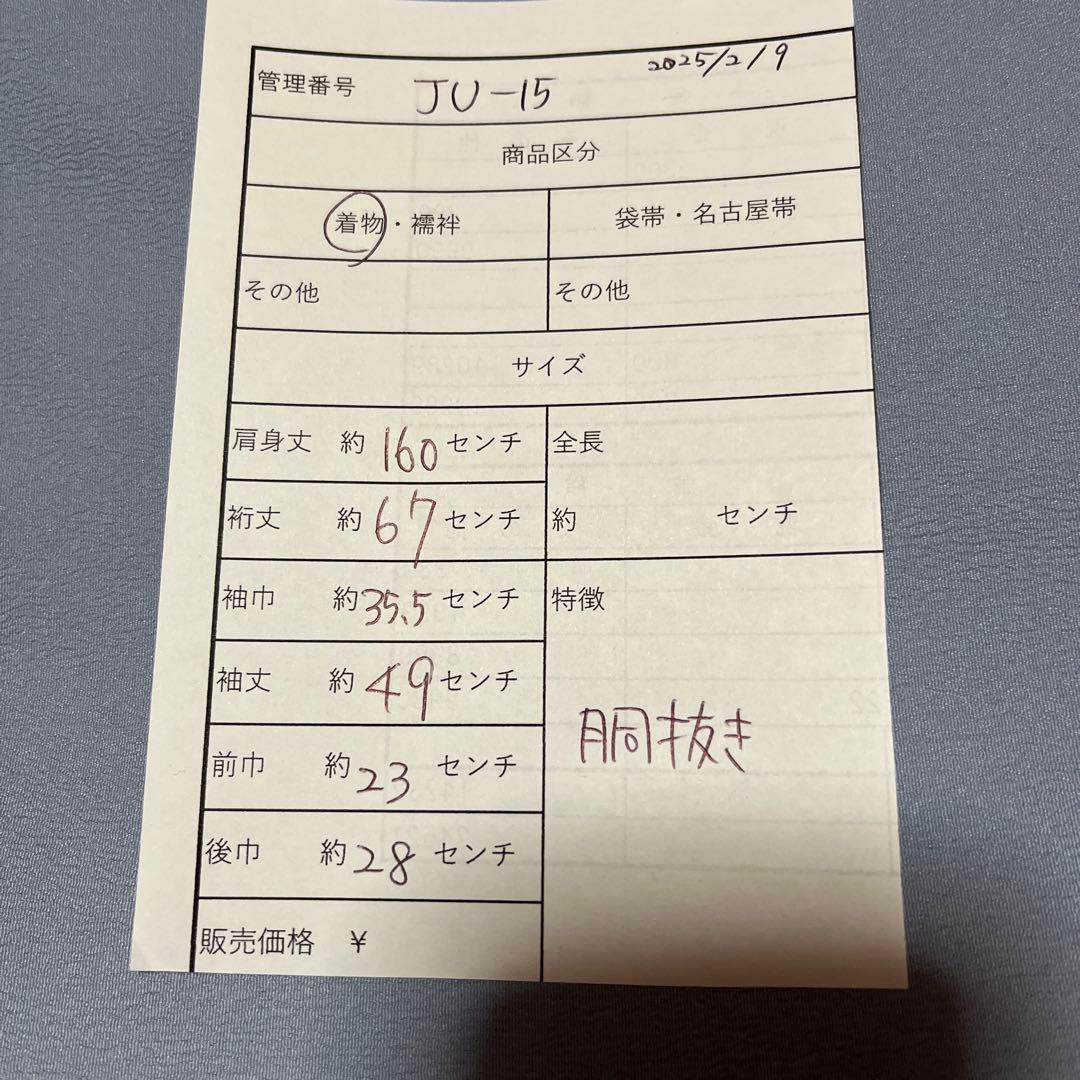 2025/2/9
管理番号 JU-15
商品区分
着物・襦袢 袋帯・名古屋帯
その他 その他
サイズ
肩身丈 約 160 センチ 全長
裄丈 約 67 センチ 約 センチ
袖巾 約 35.5 センチ 特徴
袖丈 約 49 センチ
胴抜き
前巾 約 23 センチ
後巾 約 28 センチ
販売価格 ¥